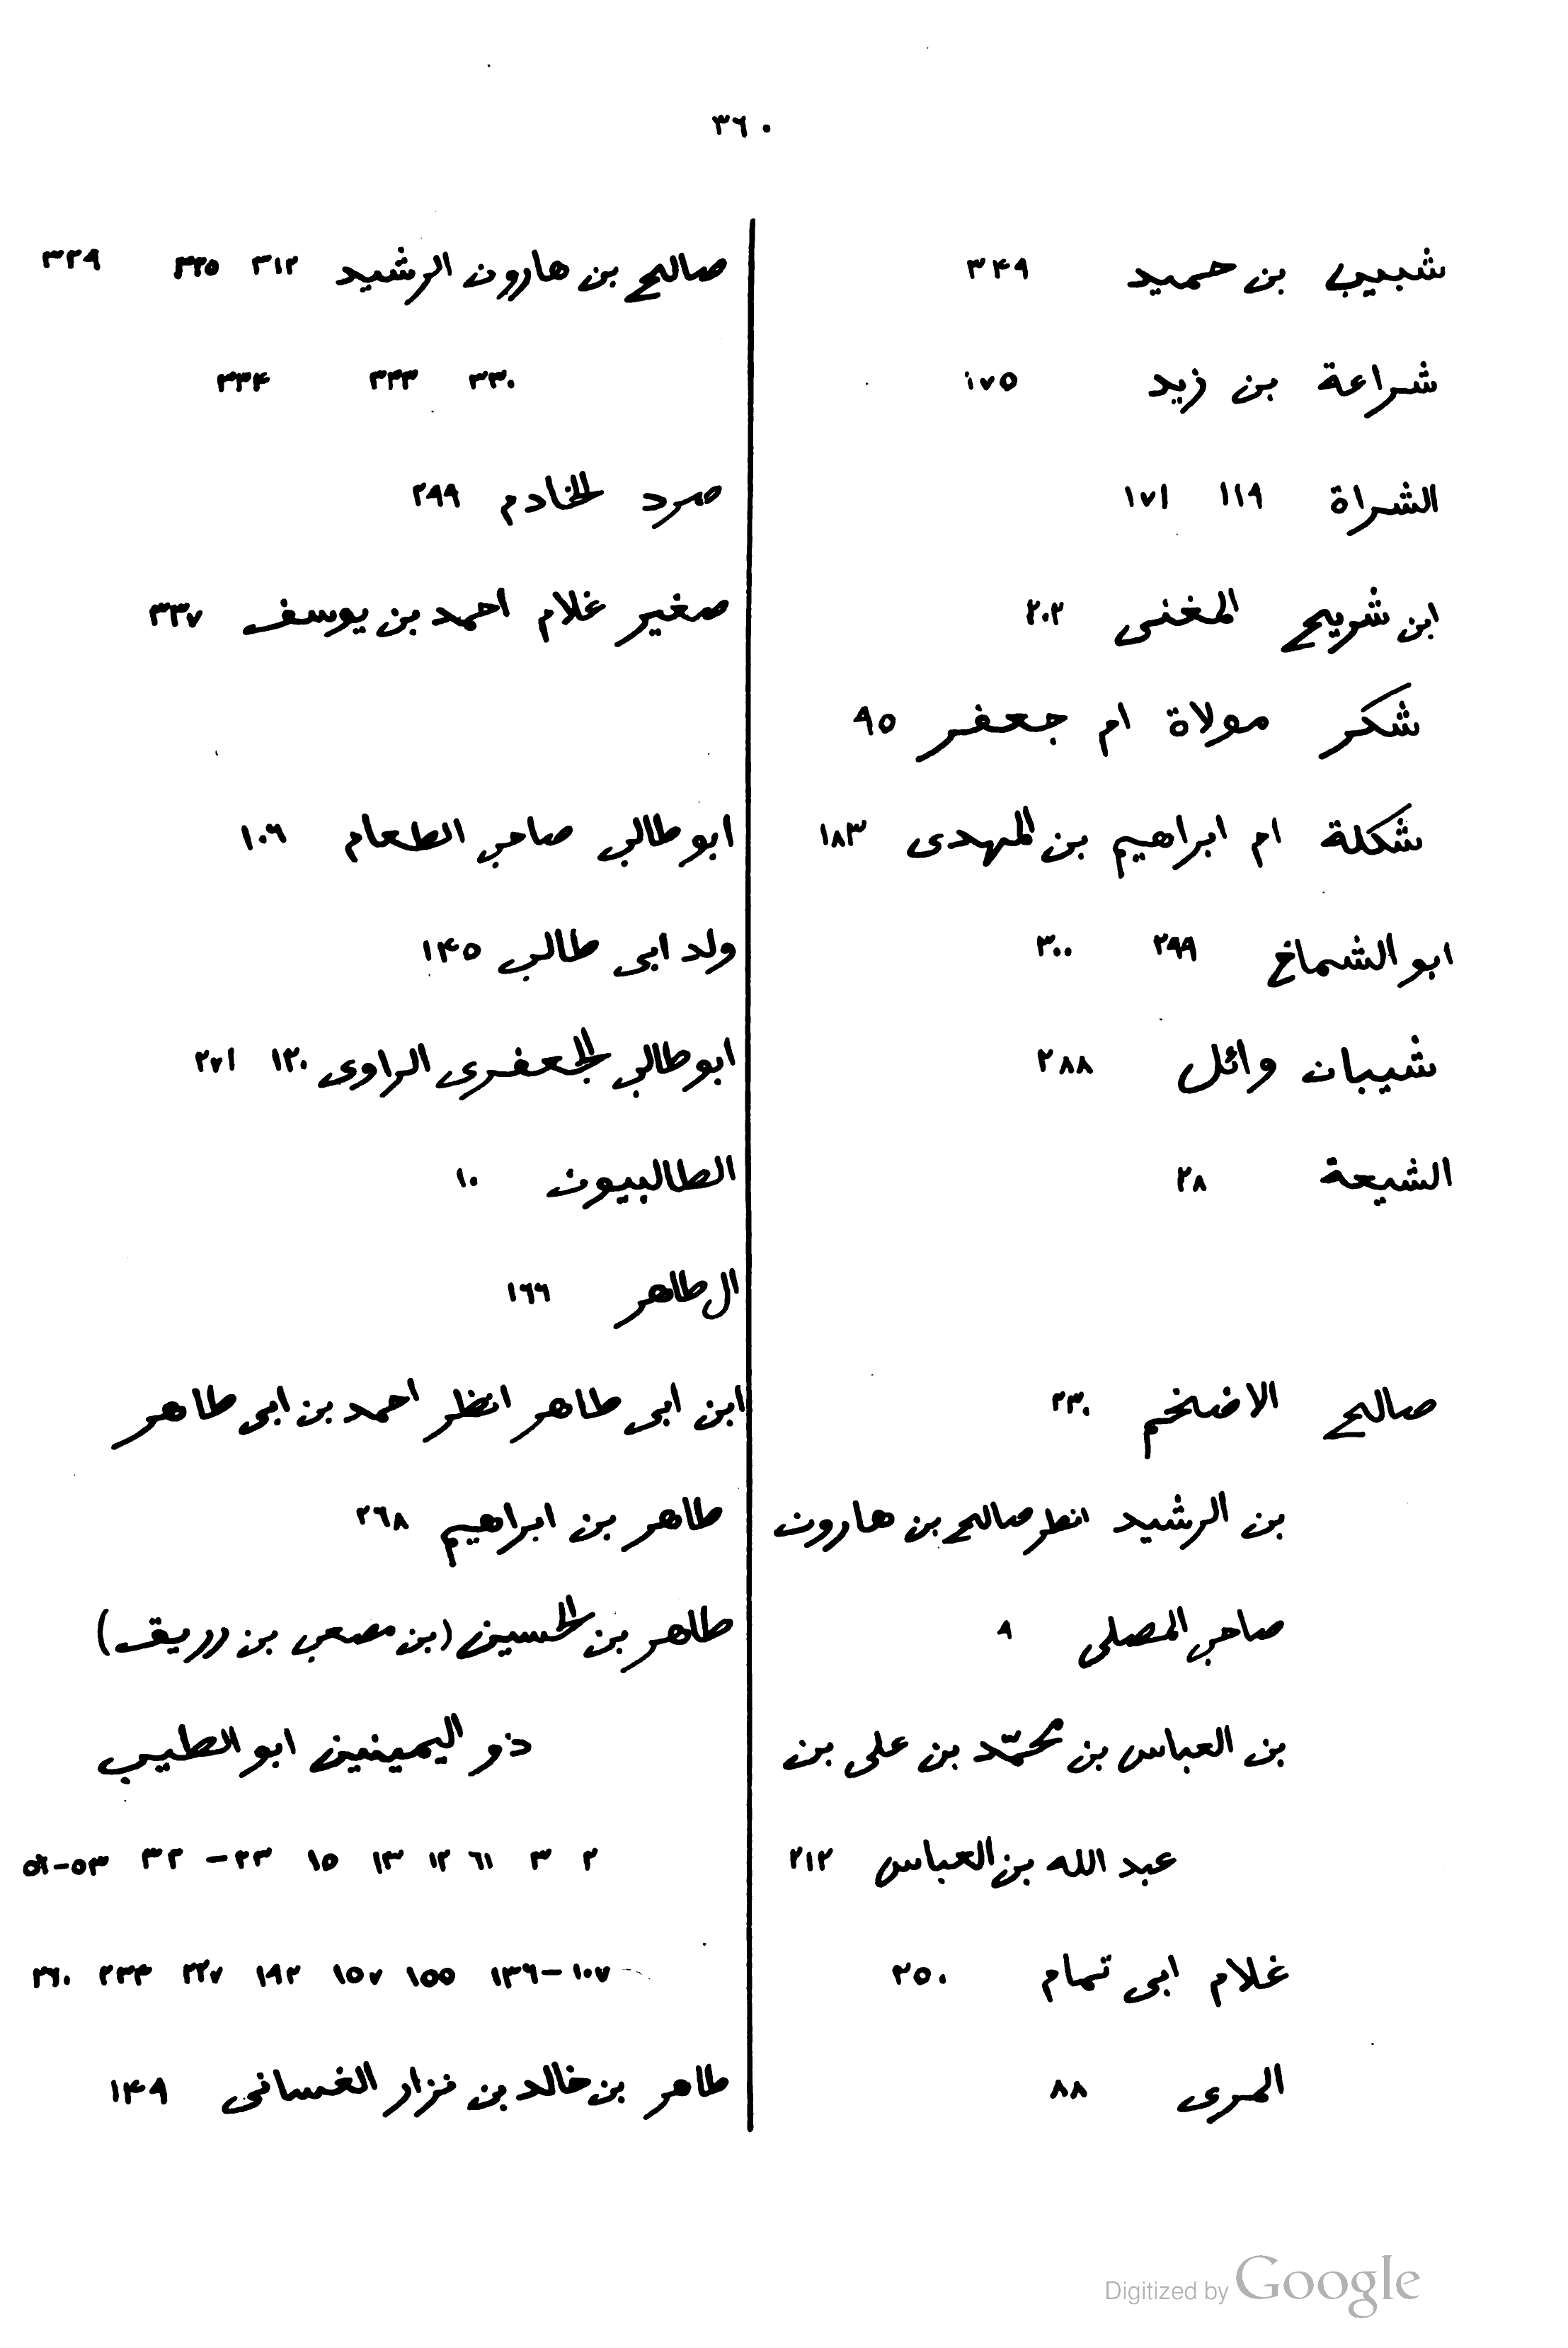 ٣٦٠
شبيب بن حميد ٣٤٩
شراعة بن زيد ١٧٥
الشراة ١١٩ ١٧١
ابن شريح المغنى ٢٠٢
شكر مولاة ام جعفر ٩٥
شكلة ام ابراهيم بن المهدى ١٨٣
ابو الشماخ ٢٩٩ ٣٠٠
شيبان وائل ٢٨٨
الشيعة ٢٨
صالح الاضخم ٢٣٠
بن الرشيد انظر صالح بن هارون
صاحب المصلى ٩
بن العباس بن محمّد بن على بن
عبد الله بن العباس ٢١٢
غلام ابى تمام ٢٥٠
المرى ٨٨
صالح بن هارون الرشيد ٣١٢ ٣٢٥ ٣٢٩
٣٣٠ ٣٣٣ ٣٣٤
صرد الخادم ٢٩٩
صغير غلام احمد بن يوسف ٣٣٧
ابو طالب صاحب الطعام ١٠٦
ولد ابى طالب ١٤٥
ابو طالب الجعفرى الراوى ١٢٠ ٢٧١
الطالبيون ١٠
ال طاهر ١٦٦
ابن ابى طاهر انظر احمد بن ابى طاهر
طاهر بن ابراهيم ٢٦٨
طاهر بن الحسين (بن مصعب بن رريق)
ذو اليمينين ابو الطيب
٢ ٣ ٦١ ١٢ ١٣ ١٥ ٢٣- ٣٢ ٥٣-٥٦
١٠٧-١٣٦ ١٥٥ ١٥٧ ١٩٢ ٢٢٧ ٢٣٣ ٢٦٠
طاهر بن خالد بن نزار الغسانى ١٤٩
Digitized by Google